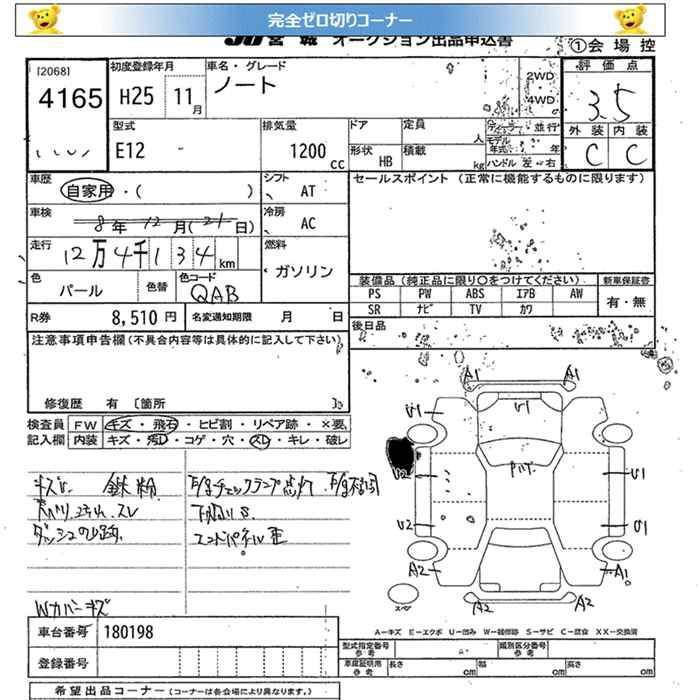 完全ゼロ切りコーナー
JU 宮城 オークション出品申込書 ①会場控
[2068]
4165
初度登録年月 H25 11月
車名・グレード ノート
2WD
4WD
評価点 3.5
外装 内装
C C
型式 E12
排気量 1200 cc
ドア
形状 HB
定員 人
積載 kg
ディーラー・並行
モデル年式 年
ハンドル 左・右
車歴 自家用・( )
シフト AT
セールスポイント (正常に機能するものに限ります)
車検 8年12月(21日)
冷房 AC
走行 12万4千134km
燃料 ガソリン
色 パール 色替 色コード QAB
装備品 (純正品に限り○をつけてください) 新車保証書
PS PW ABS エアB AW 有・無
SR ナビ TV カワ
R券 8,510 円 名変通知期限 月 日
後日品
注意事項申告欄 (不具合内容等は具体的に記入して下さい)
修復歴 有 〔箇所 〕
検査員記入欄
FW キズ・飛石・ヒビ割・リペア跡・×要
内装 キズ・汚れ・コゲ・穴・スレ・キレ・破レ
A1 A1
U1 U1
U2 U1
U2 U1
A2 A1
A2 A2
スペア
キズ 鉄粉
ダッシュのり跡
チェックランプ点灯
下廻りS
エンドパネル歪
Wカバーキズ
A−キズ E−エクボ U−凹み W−補修跡 S−サビ C−腐食 XX−交換済
車台番号 180198
登録番号
型式指定番号 参考
類別区分番号 参考
車庫証明用 参考 長さ cm 幅 cm 高さ cm
希望出品コーナー (コーナーは各会場により異なります。)